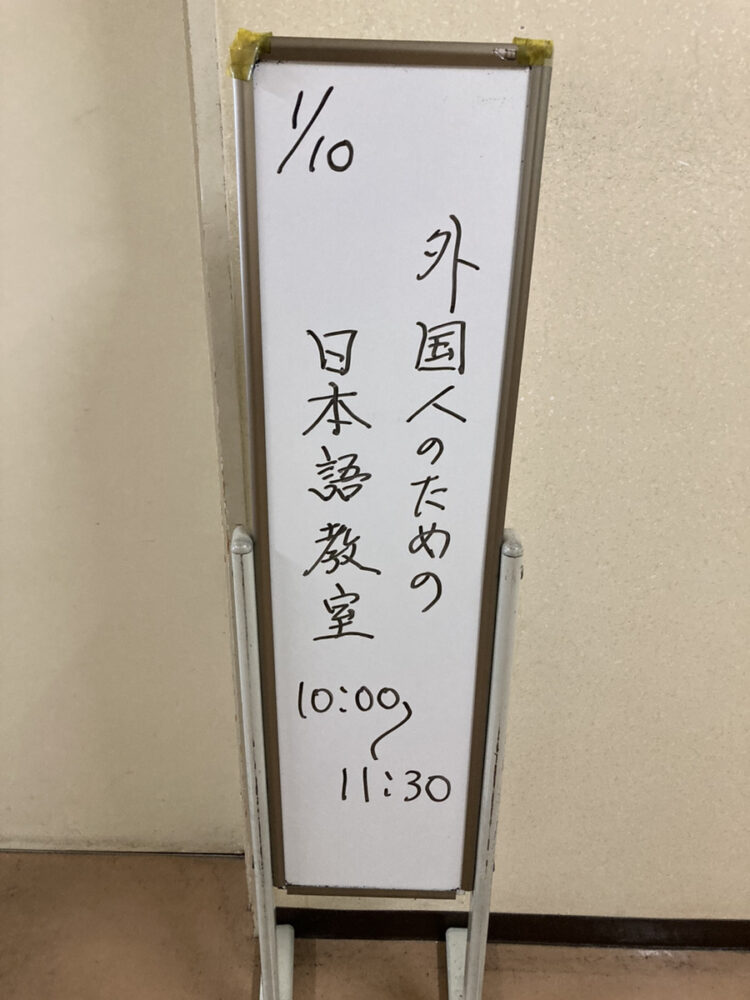 1/10
外国人のための
日本語教室
10:00〜
11:30